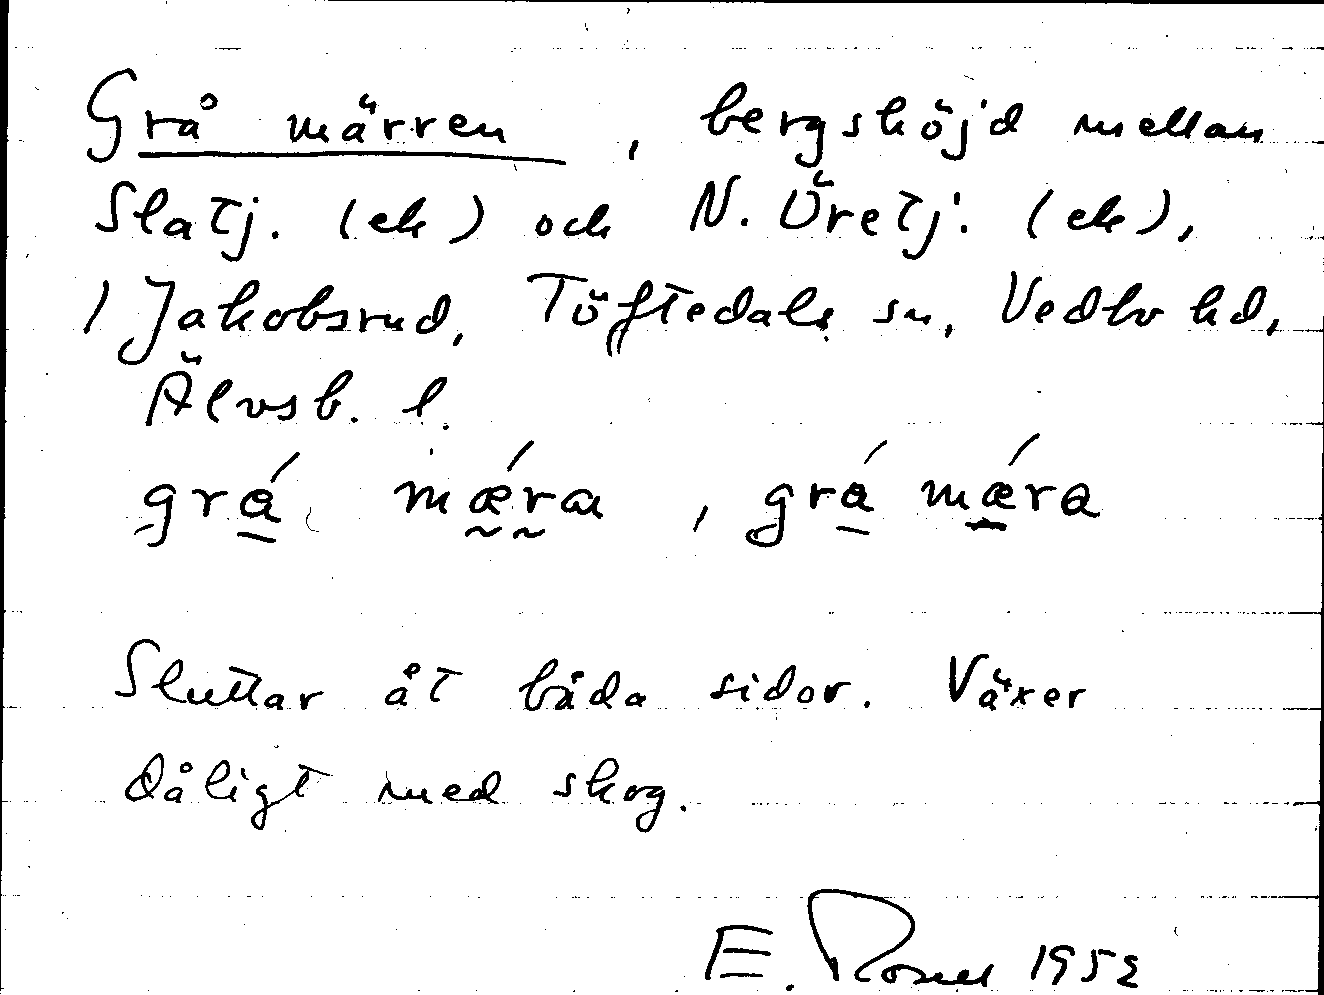 Grå märren, bergshöjd mellan
Slatj. (ek) och N. Öretj. (ek),
1 Jakobsrud, Töftedals sn, Vedbo hd,
Älvsb. l.
grá mǽra, grá mǽra
Sluttar åt båda sidor. Växer
dåligt med skog.
E. Rosell 1952